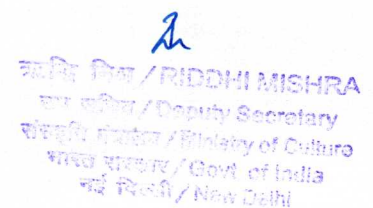 ऋद्धि मिश्रा / RIDDHI MISHRA
उप सचिव / Deputy Secretary
संस्कृति मंत्रालय / Ministry of Culture
भारत सरकार / Govt of India
नई दिल्ली / New Delhi